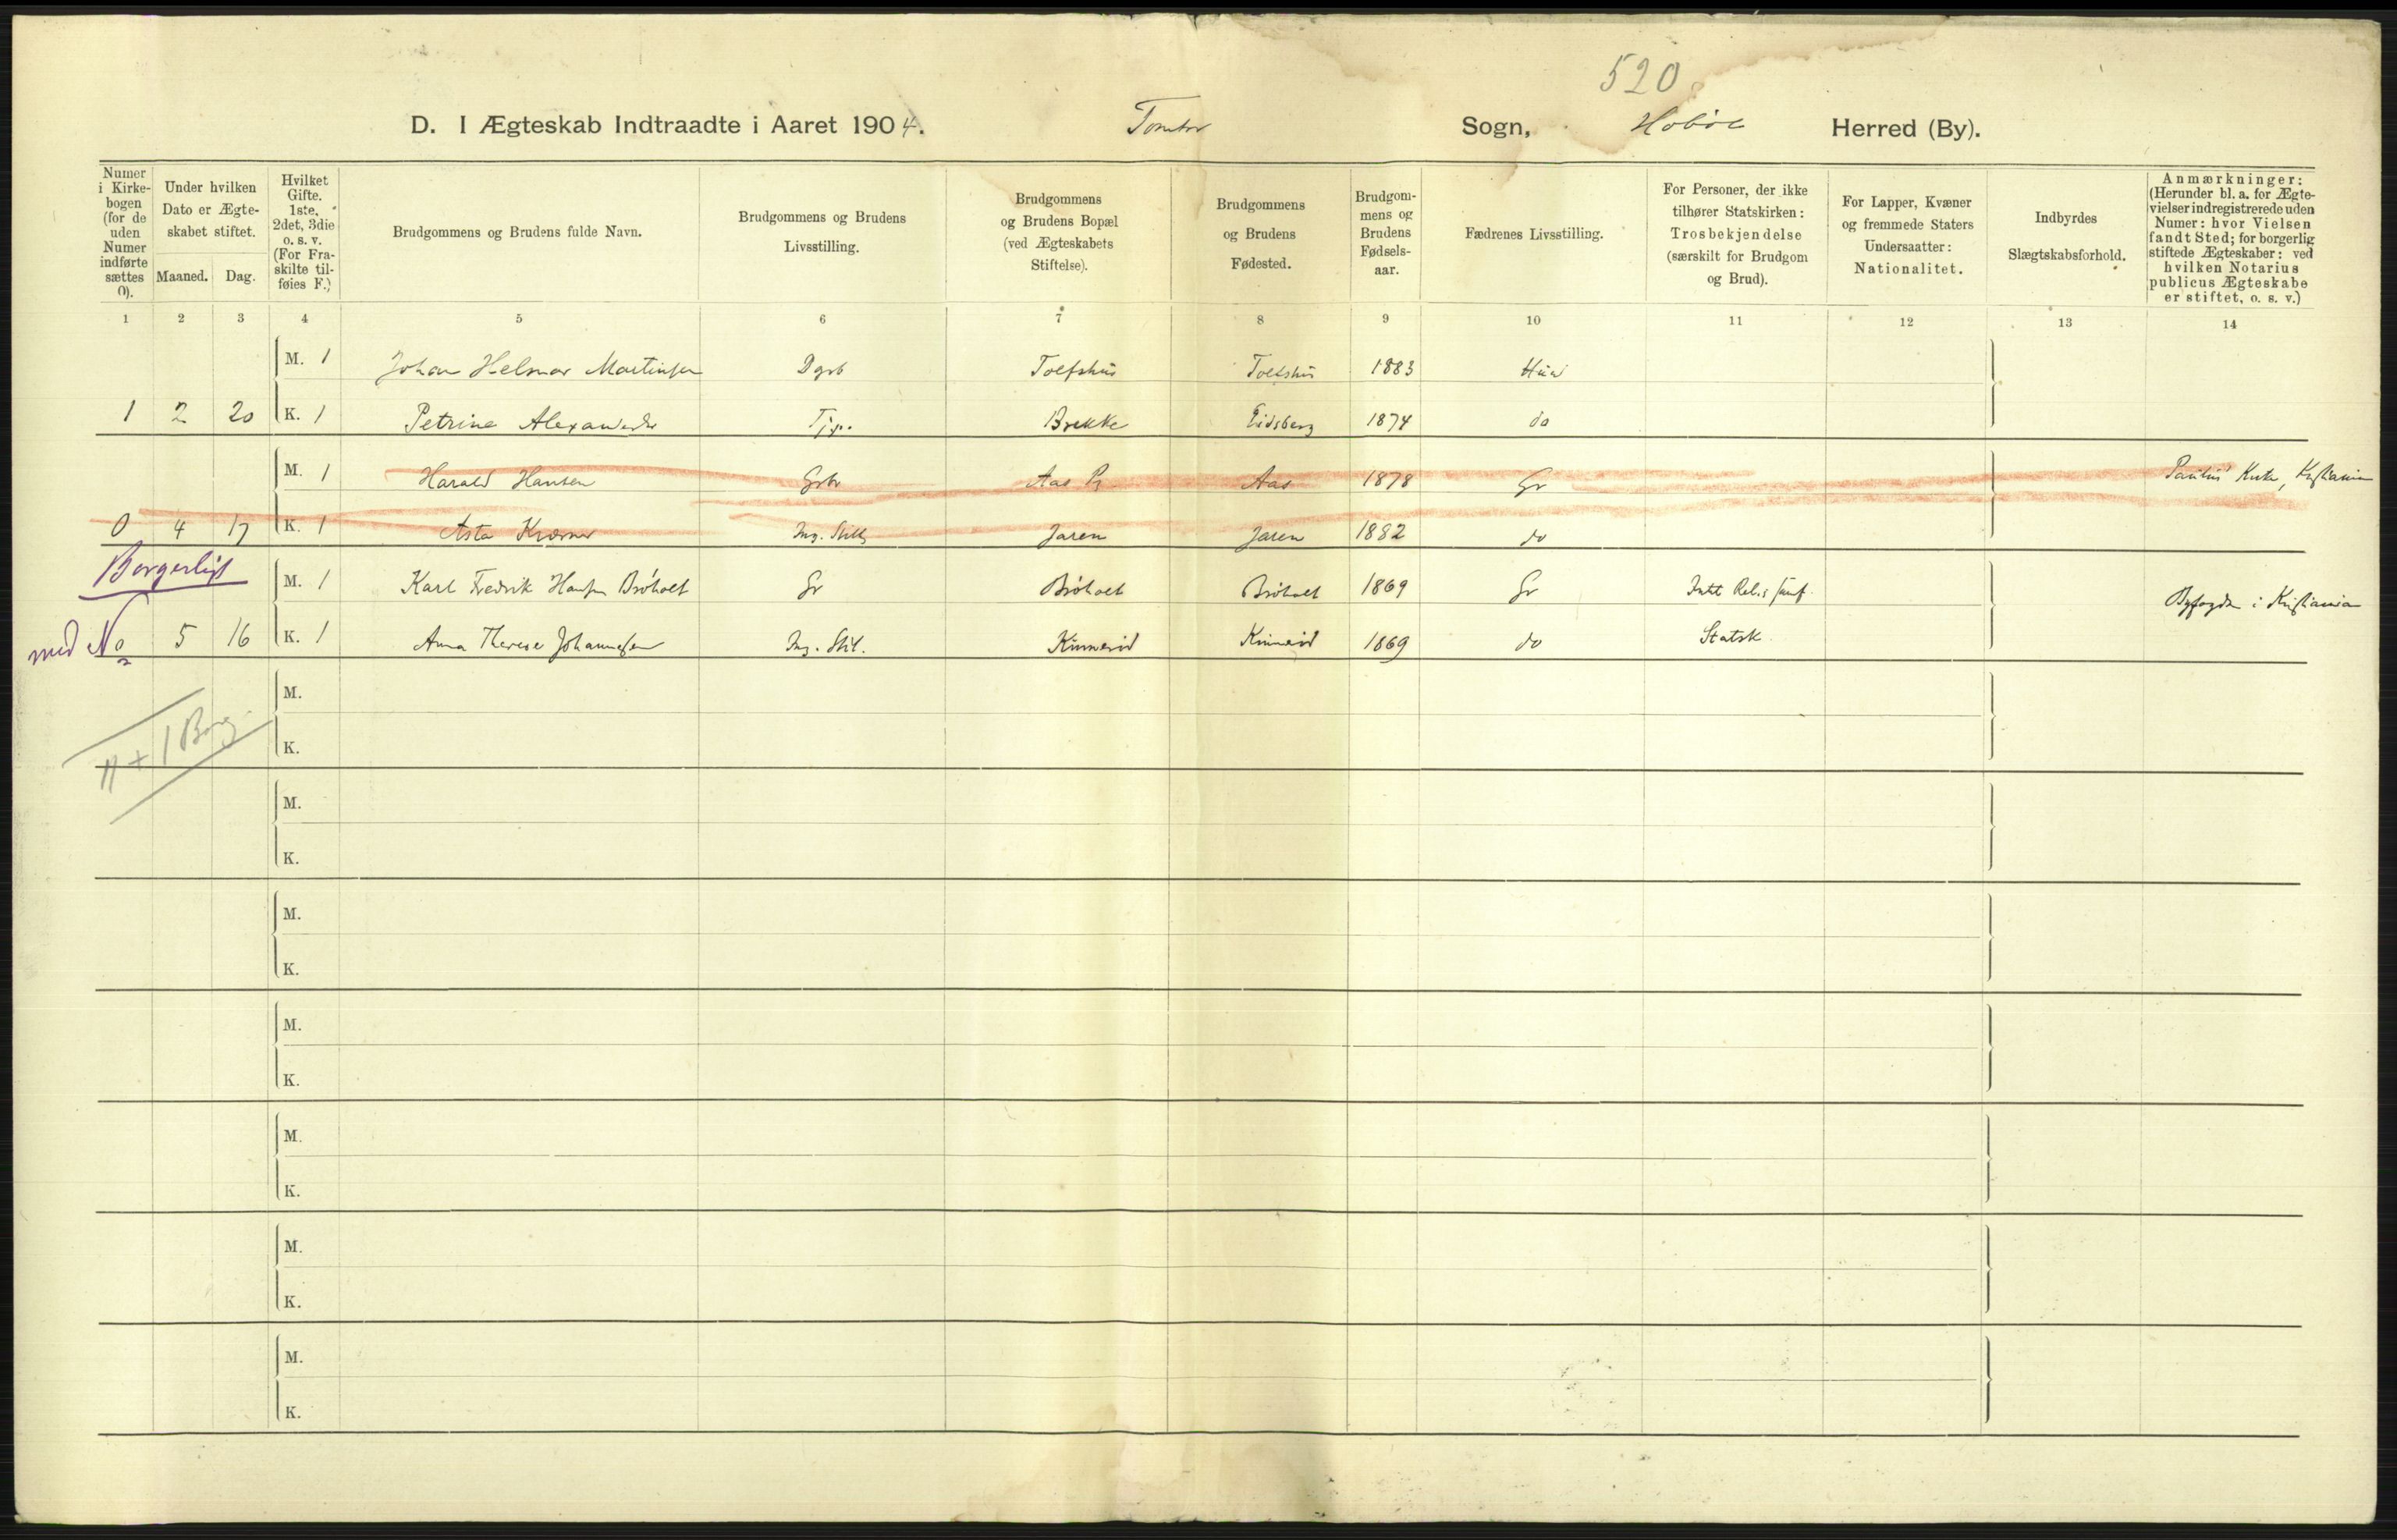 520
D. I Ægteskab Indtraadte i Aaret 1904. Tomter Sogn, Hobøl Herred (By).
Numer i Kirkebogen (for de uden Numer indførte sættes 0).
Under hvilken Dato er Ægteskabet stiftet.
Maaned. Dag.
Hvilket Gifte. 1ste, 2det, 3die o. s. v. (For Fraskilte tilføies F.)
Brudgommens og Brudens fulde Navn.
Brudgommens og Brudens Livsstilling.
Brudgommens og Brudens Bopæl (ved Ægteskabets Stiftelse).
Brudgommens og Brudens Fødested.
Brudgommens og Brudens Fødselsaar.
Fædrenes Livsstilling.
For Personer, der ikke tilhører Statskirken: Trosbekjendelse (særskilt for Brudgom og Brud).
For Lapper, Kvæner og fremmede Staters Undersaatter: Nationalitet.
Indbyrdes Slægtskabsforhold.
Anmærkninger: (Herunder bl. a. for Ægtevielser indregistrerede uden Numer: hvor Vielsen fandt Sted; for borgerlig stiftede Ægteskaber: ved hvilken Notarius publicus Ægteskabe er stiftet, o. s. v.)
1 2 3 4 5 6 7 8 9 10 11 12 13 14
M. 1 Johan Helmar Martinsen Dgrb Tolfshus Tolfshus 1883 Husm
1 2 20 K. 1 Petrine Alexandersdr Tjp. Brekke Eidsberg 1874 do
M. 1 Harald Hansen Grbr Aas Aas 1878 Gr Paulus Kirke, Kristiania
0 4 17 K. 1 Asta Kværner Ing. Still. Jaren Jaren 1882 do
Borgerligt
M. 1 Karl Fredrik Hansen Bröholt Gr Bröholt Bröholt 1869 Gr Intet Relig. samf. Byfogden i Kristiania
med No 5 16 K. 1 Anna Therese Johannesen Ing. Stil. Kinnerød Kinnerød 1869 do Statsk.
M.
1 + 1 Borg.
K.
M.
K.
M.
K.
M.
K.
M.
K.
M.
K.
M.
K.